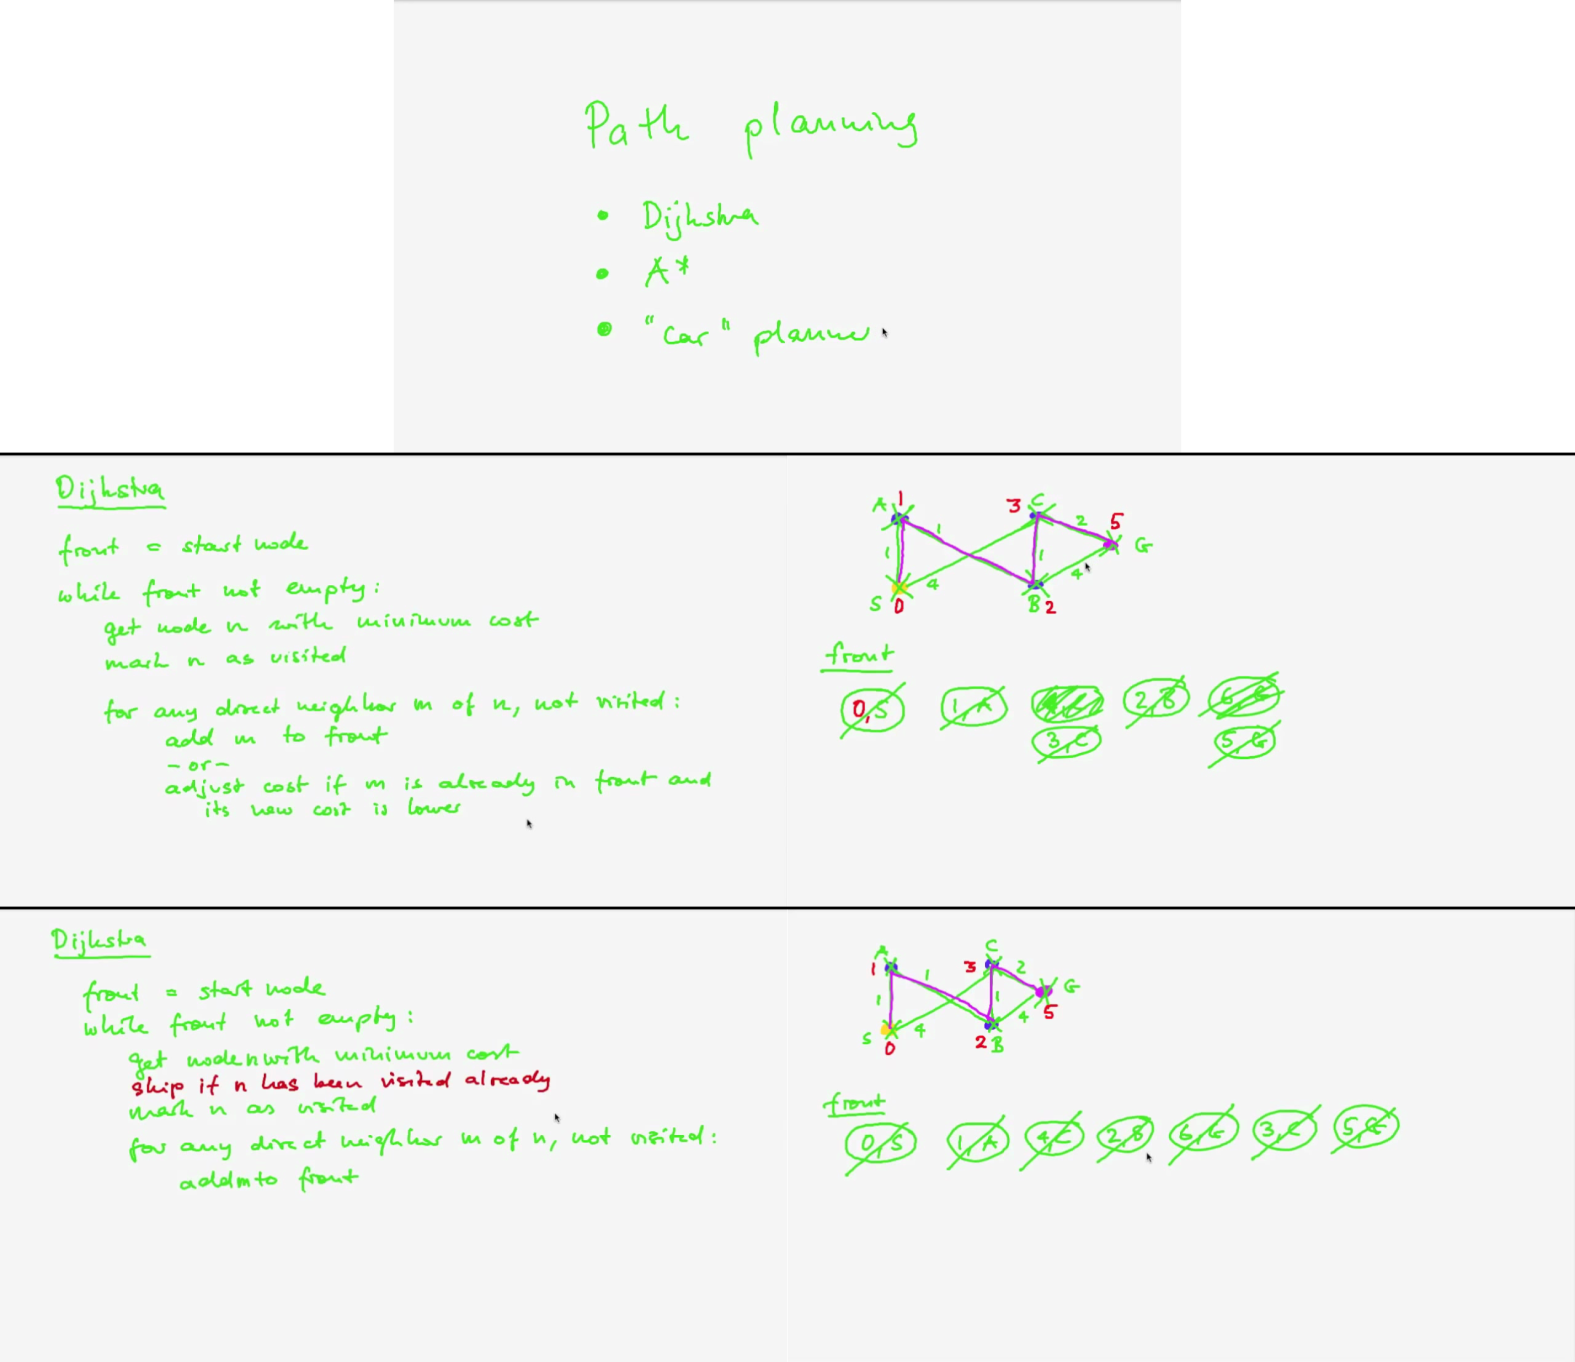 Path planning
• Dijkstra
• A*
• "car" planner
Dijkstra
front = start node
while front not empty:
get node n with minimum cost
mark n as visited
for any direct neighbor m of n, not visited:
add m to front
-or-
adjust cost if m is already in front and
its new cost is lower
A 1 3 C
1 2 5
1 1 G
4 4
S 0 B 2
front
0,S 1,A 2,B
3,C 5,G
Dijkstra
front = start node
while front not empty:
get node n with minimum cost
skip if n has been visited already
mark n as visited
for any direct neighbor m of n, not visited:
add m to front
A C
1 1 3 2
1 1 G
S 4 4 5
0 2 B
front
0,S 1,A 4,C 2,B 6,G 3,C 5,G